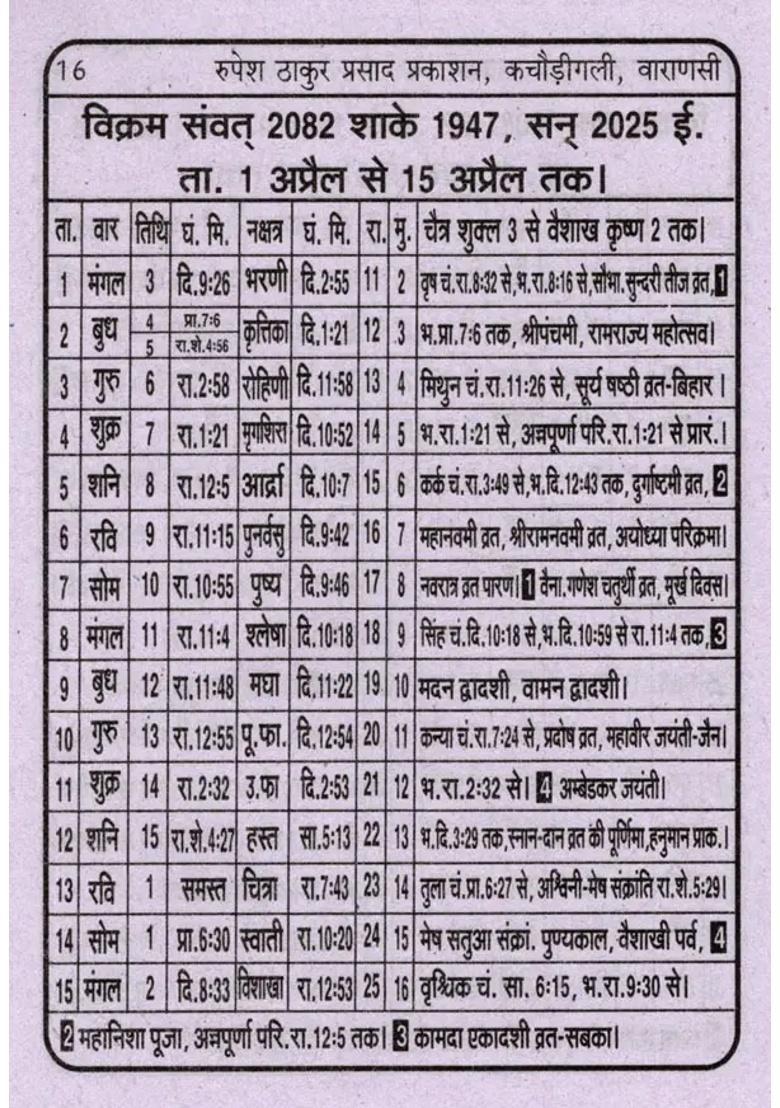 16 रुपेश ठाकुर प्रसाद प्रकाशन, कचौड़ीगली, वाराणसी
विक्रम संवत् 2082 शाके 1947, सन् 2025 ई.
ता. 1 अप्रैल से 15 अप्रैल तक।
ता. वार तिथि घं. मि. नक्षत्र घं. मि. रा. मु. चैत्र शुक्ल 3 से वैशाख कृष्ण 2 तक।
1 मंगल 3 दि.9:26 भरणी दि.2:55 11 2 वृष चं.रा.8:32 से,भ.रा.8:16 से,सौभा.सुन्दरी तीज व्रत,1
2 बुध 4 प्रा.7:6 5 रा.शे.4:56 कृत्तिका दि.1:21 12 3 भ.प्रा.7:6 तक, श्रीपंचमी, रामराज्य महोत्सव।
3 गुरु 6 रा.2:58 रोहिणी दि.11:58 13 4 मिथुन चं.रा.11:26 से, सूर्य षष्ठी व्रत-बिहार।
4 शुक्र 7 रा.1:21 मृगशिरा दि.10:52 14 5 भ.रा.1:21 से, अन्नपूर्णा परि.रा.1:21 से प्रारं.।
5 शनि 8 रा.12:5 आर्द्रा दि.10:7 15 6 कर्क चं.रा.3:49 से,भ.दि.12:43 तक, दुर्गाष्टमी व्रत, 2
6 रवि 9 रा.11:15 पुनर्वसु दि.9:42 16 7 महानवमी व्रत, श्रीरामनवमी व्रत, अयोध्या परिक्रमा।
7 सोम 10 रा.10:55 पुष्य दि.9:46 17 8 नवरात्र व्रत पारण। 1 वैना.गणेश चतुर्थी व्रत, मूर्ख दिवस।
8 मंगल 11 रा.11:4 श्लेषा दि.10:18 18 9 सिंह चं.दि.10:18 से,भ.दि.10:59 से रा.11:4 तक,3
9 बुध 12 रा.11:48 मघा दि.11:22 19 10 मदन द्वादशी, वामन द्वादशी।
10 गुरु 13 रा.12:55 पू.फा. दि.12:54 20 11 कन्या चं.रा.7:24 से, प्रदोष व्रत, महावीर जयंती-जैन।
11 शुक्र 14 रा.2:32 उ.फा दि.2:53 21 12 भ.रा.2:32 से। 4 अम्बेडकर जयंती।
12 शनि 15 रा.शे.4:27 हस्त सा.5:13 22 13 भ.दि.3:29 तक,स्नान-दान व्रत की पूर्णिमा,हनुमान प्राक.।
13 रवि 1 समस्त चित्रा रा.7:43 23 14 तुला चं.प्रा.6:27 से, अश्विनी-मेष संक्रांति रा.शे.5:29।
14 सोम 1 प्रा.6:30 स्वाती रा.10:20 24 15 मेष सतुआ संक्रां. पुण्यकाल, वैशाखी पर्व, 4
15 मंगल 2 दि.8:33 विशाखा रा.12:53 25 16 वृश्चिक चं. सा. 6:15, भ.रा.9:30 से।
2 महानिशा पूजा, अन्नपूर्णा परि.रा.12:5 तक। 3 कामदा एकादशी व्रत-सबका।